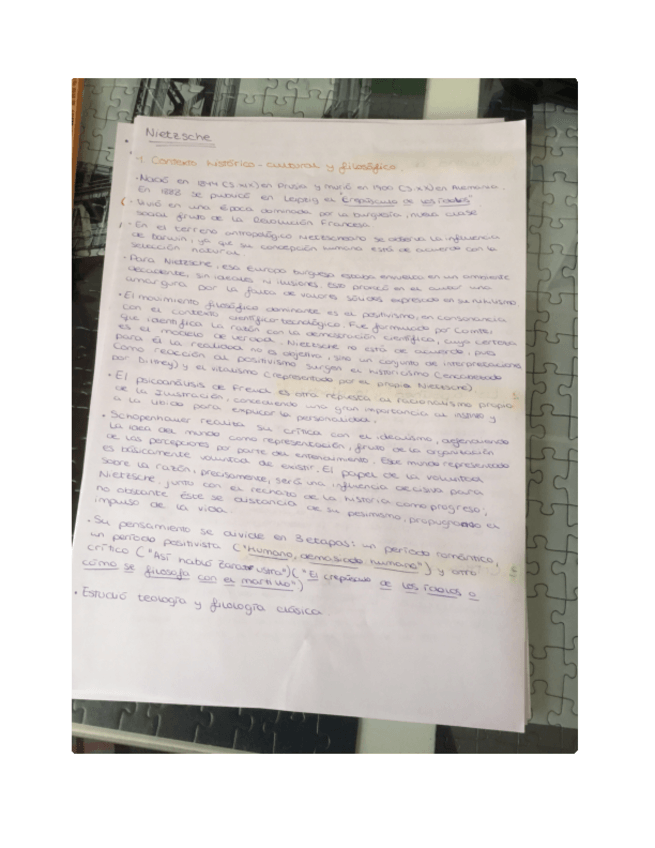 Nietzsche
1 Contexto histórico-cultural y filosófico.
· Nació en 1844 (S.XIX) en Prusia y murió en 1900 (S.XX) en Alemania.
En 1888 se publicó en Leipzig el "Crepúsculo de los ídolos"
· Vivió en una época dominada por la burguesía, nueva clase
social fruto de la Revolución Francesa.
· En el terreno antropológico nietzscheano se observa la influencia
de Darwin, ya que su concepción humana está de acuerdo con la
selección natural.
· Para Nietzsche, esa Europa burguesa estaba envuelta en un ambiente
decadente, sin ideales ni ilusiones. Esto provocó en el autor una
amargura por la falta de valores sólidos expresado en su nihilismo.
· El movimiento filosófico dominante es el positivismo, en consonancia
con el contexto científico-tecnológico. Fue formulado por Comte,
que identifica la razón con la demostración científica, cuya certeza
es el modelo de verdad. Nietzsche no está de acuerdo, pues
para él la realidad no es objetiva, sino un conjunto de interpretaciones
Como reacción al positivismo surgen el historicismo (encabezado
por Dilthey) y el vitalismo (representado por el propio Nietzsche)
· El psicoanálisis de Freud es otra repuesta al racionalismo propio
de la Ilustración, concediendo una gran importancia al instinto y
a la libido para explicar la personalidad.
· Schopenhauer realiza su crítica con el idealismo, defendiendo
la idea del mundo como representación, fruto de la organización
de las percepciones por parte del entendimiento. Este mundo representado
es básicamente voluntad de existir. El papel de la voluntad
sobre la razón, precisamente, será una influencia decisiva para
Nietzsche, junto con el rechazo de la historia como progreso;
no obstante éste se distancia de su pesimismo, propugnando el
impulso de la vida.
· Su pensamiento se divide en 3 etapas: un período romántico,
un período positivista ("Humano, demasiado humano") y otro
crítico ("Así habló Zaratustra") ("El crepúsculo de los ídolos, o
cómo se filosofa con el martillo")
· Estudió teología y filología clásica